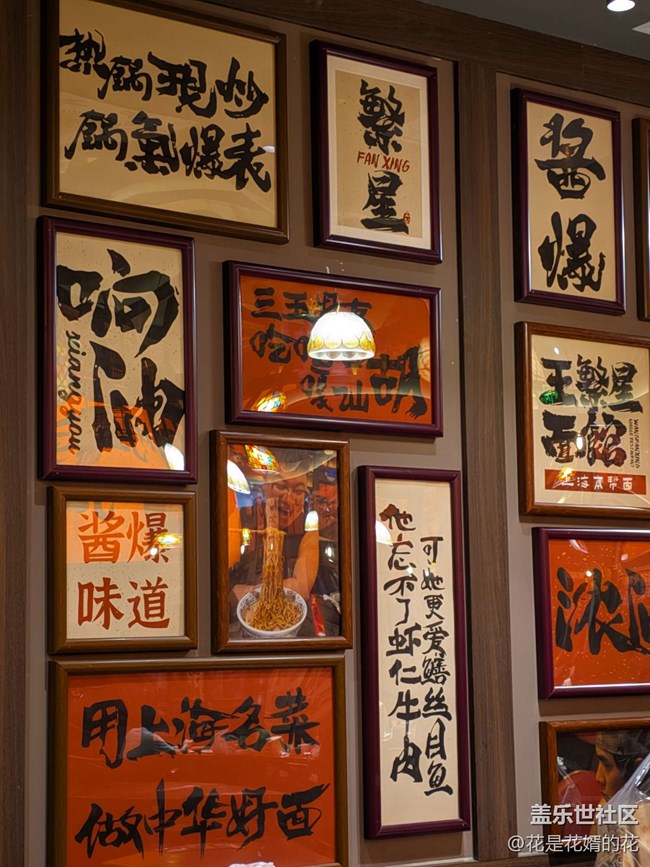 热鍋現炒
鍋氣爆表
繁
FAN XING
星
酱
爆
响油
xiangyou
三五
吃
胡
王繁星
面館
上海本帮面
酱爆
味道
他忘不了虾仁牛肉
可她更爱鳝丝目鱼
浓
用上海名菜
做中华好面
盖乐世社区
@花是花婿的花